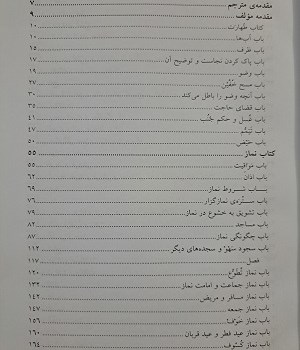 مقدمه‌ی مترجم ۷
مقدمه مؤلف ۹
کتاب طهارت ۱۰
باب آب‌ها ۱۰
باب ظرف ۱۵
باب پاک کردن نجاست و توضیح آن ۱۷
باب وضو ۱۹
باب مسح خُفَّیْن ۲۷
باب آنچه وضو را باطل می‌کند ۳۰
باب قضای حاجت ۳۵
باب غُسل و حکم جُنُب ۴۱
باب تَیَمُّم ۴۷
باب حَیْض ۵۰
کتاب نماز ۵۵
باب مَوَاقیت ۵۵
باب اذان ۶۲
بـاب شـروط نماز ۶۹
باب سـتره‌ی نمازگزار ۷۶
باب تشویق به خشوع در نماز ۷۹
باب مساجد ۸۲
باب چگونگی نماز ۸۷
باب سجود سَهْو و سجده‌های دیگر ۱۱۲
فصل ۱۱۷
باب نماز تَطَوُّع ۱۲۰
باب نماز جماعت و امامت نماز ۱۳۲
باب نماز مسافر و مریض ۱۴۲
باب نماز جمعه ۱۴۷
باب نماز خَوْف ۱۵۶
باب نماز عید فطر و عید قربان ۱۶۰
باب نماز کُسُوف ۱۶۴